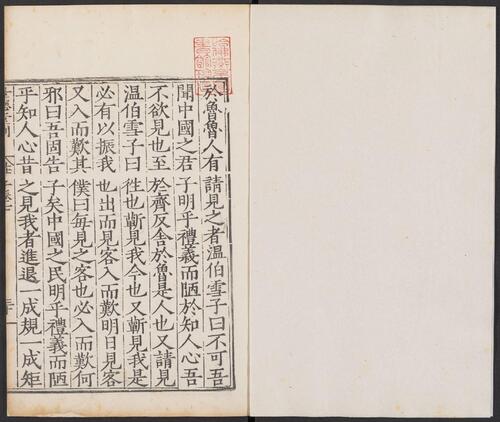 於魯魯人有請見之者溫伯雪子曰不可吾
聞中國之君子明乎禮義而陋於知人心吾
不欲見也至於齊反舍於魯是人也又請見
温伯雪子曰徃也蘄見我今也又蘄見我是
必有以振我也出而見客入而歎明日見客
又入而歎其僕曰每見之客也必入而歎何
邪曰吾固告子矣中國之民明乎禮義而陋
乎知人心昔之見我者進退一成規一成矩